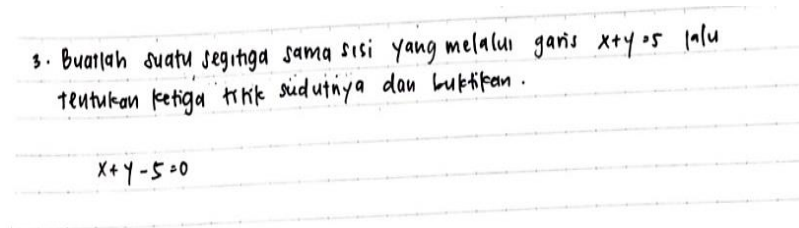 3. Buatlah suatu segitiga sama sisi yang melalui garis x+y=5 lalu
tentukan ketiga titik sudutnya dan buktikan.
x+y-5=0